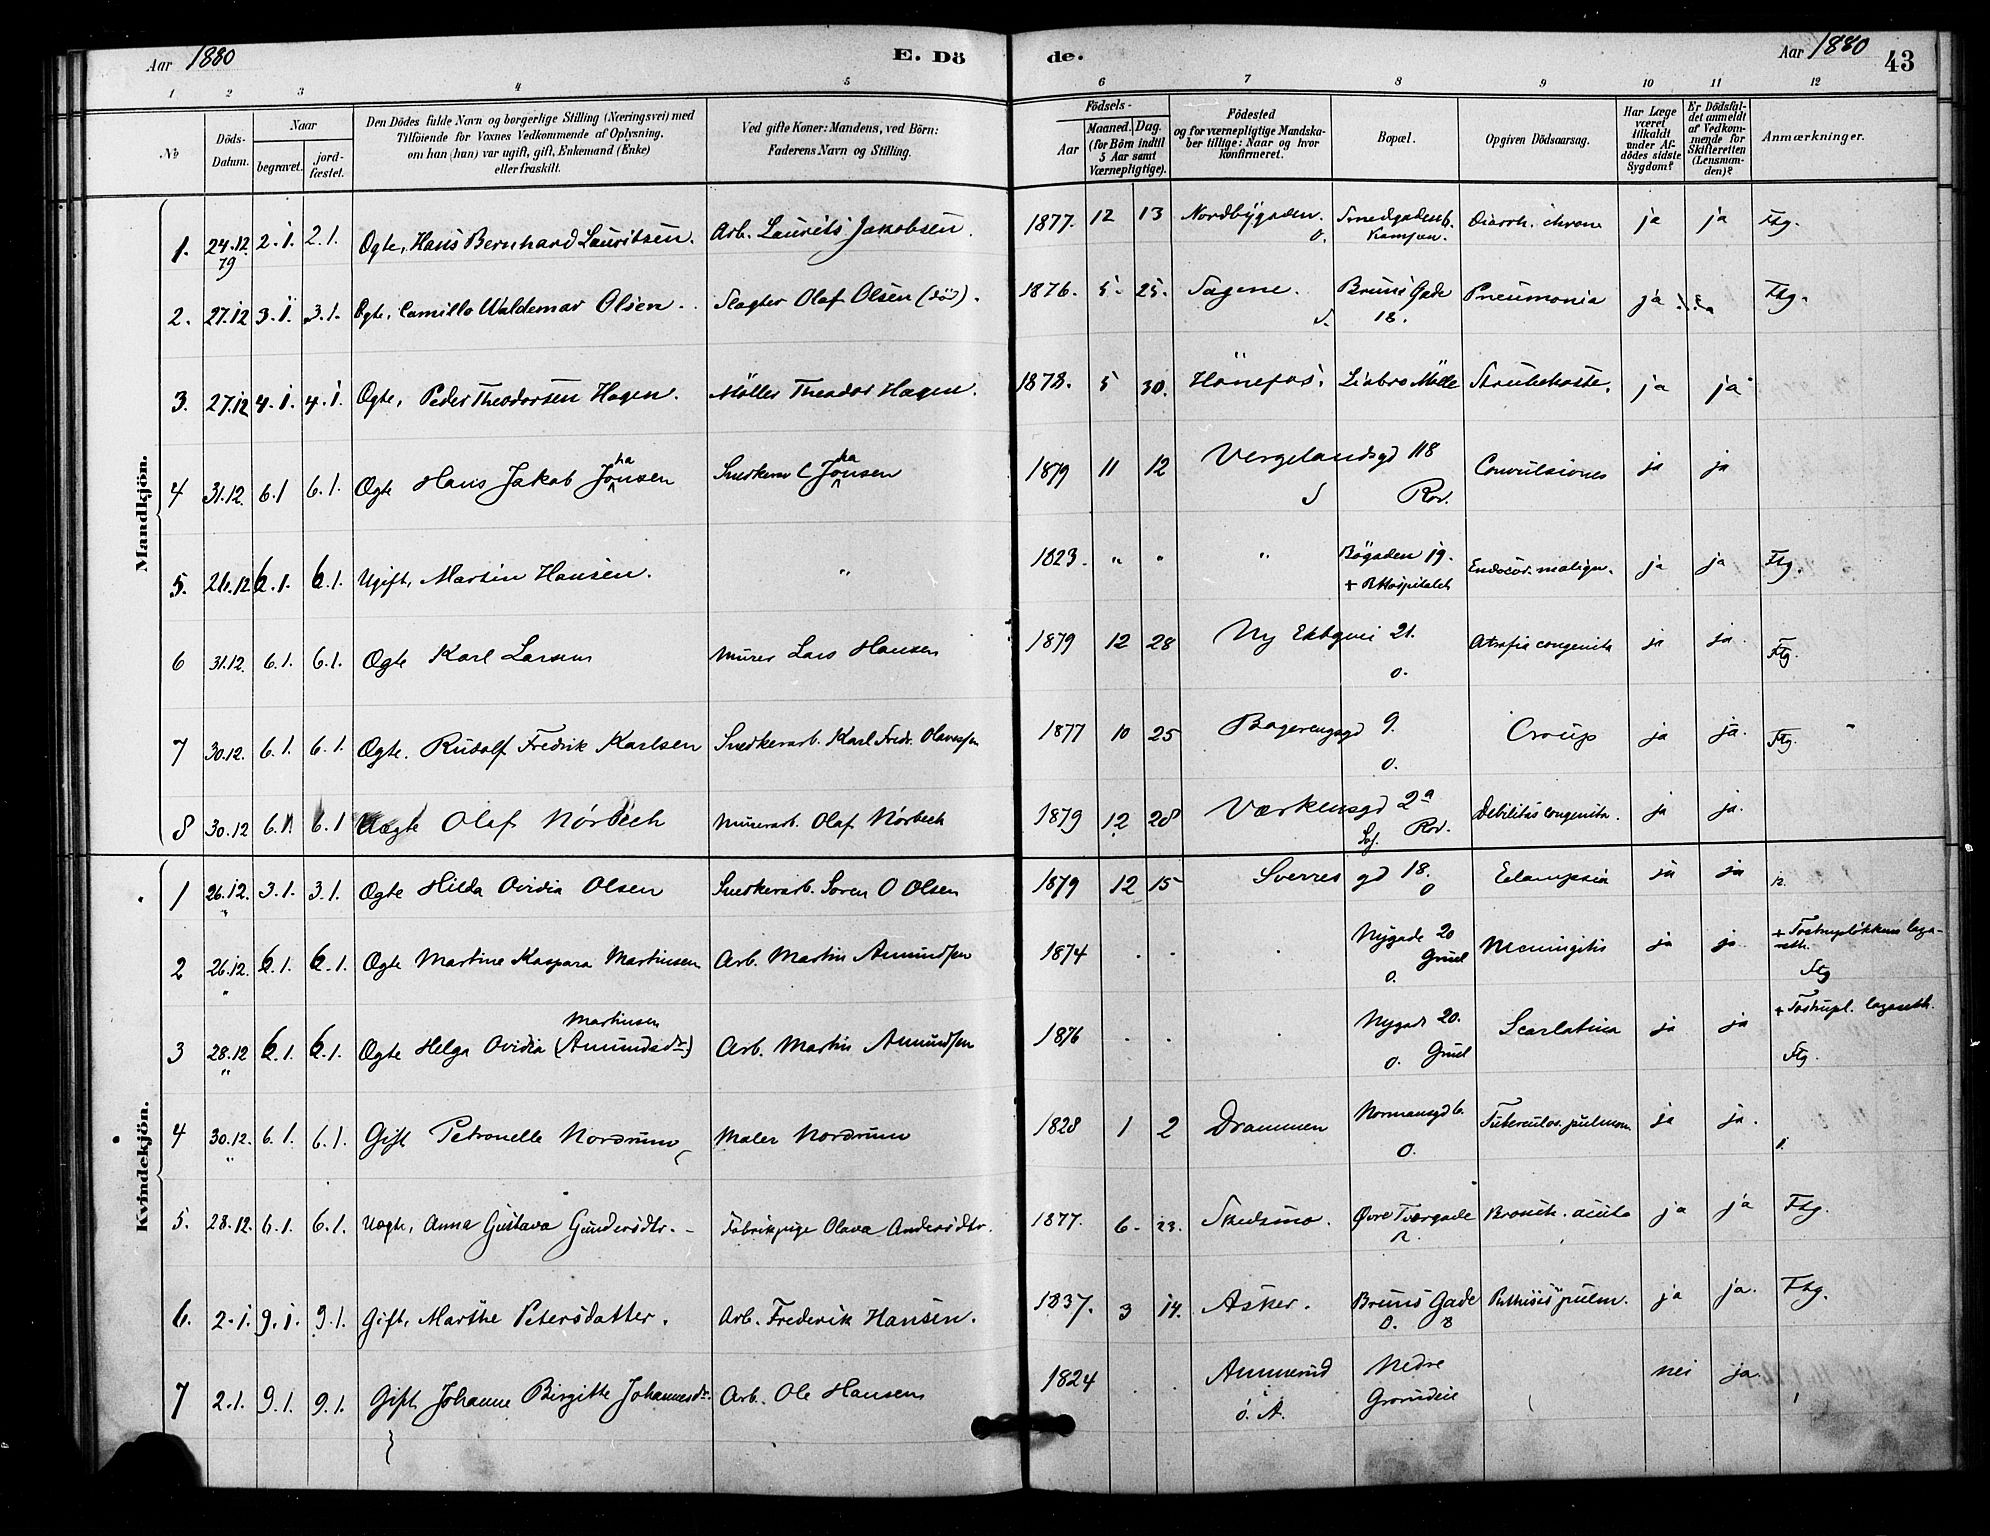 Aar 1880 E. Dö de. Aar 1880 43
1 2 3 4 5 6 7 8 9 10 11 12
No
Döds-Datum.
Naar
begravet.
jordfæstet.
Den Dödes fulde Navn og borgerlige Stilling (Næringsvei) med
Tilföiende for Voxnes Vedkommende af Oplysning,
om han (hun) var ugift, gift, Enkemand (Enke)
eller fraskilt.
Ved gifte Koner: Mandens, ved Börn:
Faderens Navn og Stilling.
Födsels-
Aar
Maaned. Dag.
(for Börn indtil
5 Aar samt
Værnepligtige).
Födested
og for værnepligtige Mandska-
ber tillige: Naar og hvor
konfirmeret.
Bopæl.
Opgiven Dödsaarsag.
Har Læge
været
tilkaldt
under Af-
dödes sidste
Sygdom?
Er Dödsfal-
det anmeldt
af Vedkom-
mende for
Skifteretten
(Lensman-
den)?
Anmærkninger.
Mandkjön.
1. 24.12. 79 2.1. 2.1. Ægte, Hans Bernhard Lauritsen. Arb. Laurits Jakobsen. 1877. 12 13 Nordbygaden. O. Smedgaden 6. Kampen. Diarrh. chron ja ja Ftg.
2. 27.12 3.1. 3.1. Ægte, Camillo Waldemar Olsen. Slagter Olaf Olsen (död). 1876. 5. 25. Sagene. Bruns Gade 18. Pneumonia ja Ftg.
3. 27.12 4.1. 4.1. Ægte, Peder Theodorsen Hagen. Möller Theodor Hagen. 1878. 5 30. Hönefos. Liabro Mölle Strubehoste. ja ja
4 31.12. 6.1 6.1. Ægte Hans Jakob Johansen Snedker Johansen 1879 11 12 Vergelandsgd 118 Convulsiones ja ja
5. 21.12 6.1. 6.1. Ugift, Martin Hansen. " 1823. " " " Bögaden 19. + R Hospitalet Endocar. malign. ja ja Ftg.
6 31.12. 6.1. 6.1. Ægte Karl Larsen Murer Lars Hansen 1879 12 28 Ny Ekbgvei 21. O. Atrofia congenita ja ja. Ftg.
7 30.12. 6.1. 6.1. Ægte. Rudolf Fredrik Karlsen Snedkerarb. Karl Fredr. Olavessen 1877 10 25 Bogerengsgd 9. O. Croup ja ja. Ftg.
8 30.12 6.1. 6.1 Uægte Olaf Nörbech Murerarb. Olaf Nörbech 1879 12 28 Værkensgd 2a Debilitas congenita. ja ja.
Kvindekjön.
1 26.12. " 3.1. 3.1. Ægte Hilda Ovidia Olsen Snedkerarb. Soren O Olsen 1879 12 15 Sverres gd 18. O Eclampsia ja ja
2 26.12. " 6.1. 6.1. Ægte Martine Kaspara Martinsen Arb. Martin Amundsen 1874 . . . Nygade 20 O. Meningitis ja ja + Tostrupløkkens lazareth. Ftg
3 28.12 " 6.1. 6.1. Ægte Helga Ovidia Martinsen (Amundsdr) Arb. Martin Amundsen 1876 . . . Nygade 20. O. Scarlatina ja ja + Tostrupl. lazareth. Ftg.
4 30.12. " 6.1. 6.1. Gift Petronelle Nordrum Maler Nordrum 1828 1 2 Drammen Normansgd 6. O. Tuberculos. pulmon. ja ja.
5. 28.12. 6.1. 6.1. Uægte, Anna Gustava Gundersdtr. Fabrikpige Olava Andersdtr. 1877. 6. 23. Skedsmo. Øvre Tværgade Bronch. acuta ja ja Ftg.
6. 2.1. 9.1. 9.1. Gift, Marthe Petersdatter. Arb. Frederik Hansen. 1837. 3 14. Asker. Bruns Gade O. 8 Phthisis pulm. ja ja. Ftg.
7 2.1. 9.1. 9.1. Gift Johanne Birgitte Johannesdr. Arb. Ole Hansen 1824 . . Ammerud i Ö. A. Nedre Grorudeie nei ja.